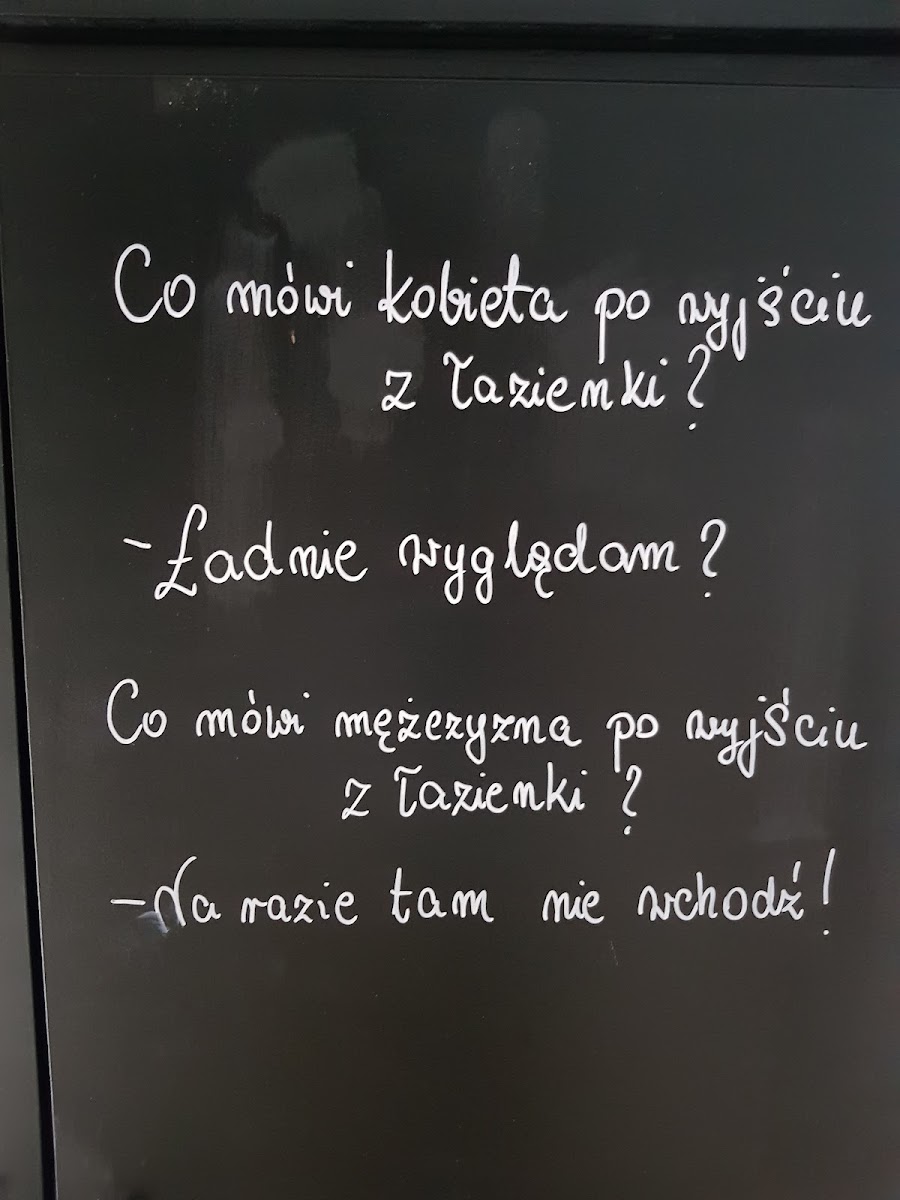 Co mówi kobieta po wyjściu
z łazienki?
- Ładnie wyglądam?
Co mówi mężczyzna po wyjściu
z łazienki?
- Na razie tam nie wchodź!